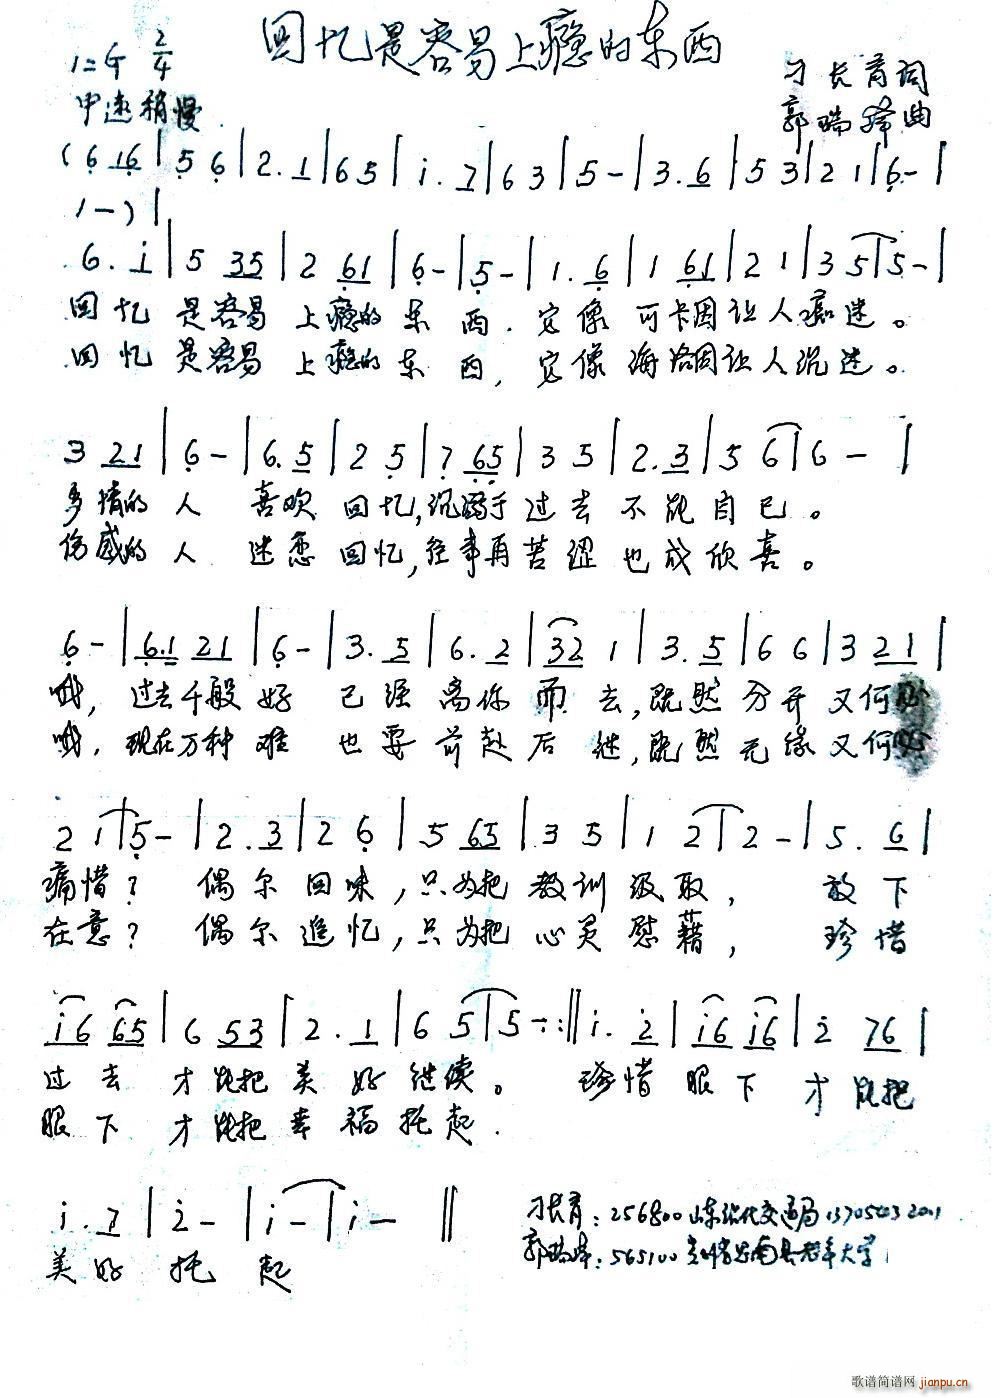 回忆是容易上瘾的东西
1=G 2/4
刁长育词
中速稍慢
郭瑞泽曲
(6 16|5 6|2.1|65|i.7|63|5-|3.6|53|21|6-|
1-)|
6.i|5 35|2 61|6-|5-|1.6|1 61|21|35|5-|
回忆 是容易 上瘾的东 西.它像 可卡因让人痴迷。
回忆 是容易 上瘾的东 西,它像 海洛因让人沉迷。
3 21|6-|6.5|25|7 65|35|2.3|56|6-|
多情的人 喜欢 回忆,沉溺于过去不能自已。
伤感的人 迷恋 回忆,往事再苦涩也成欣喜。
6-|6.1 21|6-|3.5|6.2|32 1|3.5|66|3 21|
哦,过去千般好 已经离你而去,既然分开又何必
哦.现在万种难 也要前赴后继,既然无缘又何必
2 1|5-|2.3|26|5 65|35|12|2-|5.6|
痛惜? 偶尔回味,只为把教训汲取, 放下
在意? 偶尔追忆,只为把心灵慰藉, 珍惜
i6 65|6 53|2.1|65|5-:||i.2|i6 i6|2 76|
过去 才能把美好继续。 珍惜眼下 才能把
眼下 才能把幸福托起.
i.7|2-|i-|i-||
美好 托 起
刁长育:256800山东沾化交通局
565100 老年大学
歌谱简谱网
jianpu.cn